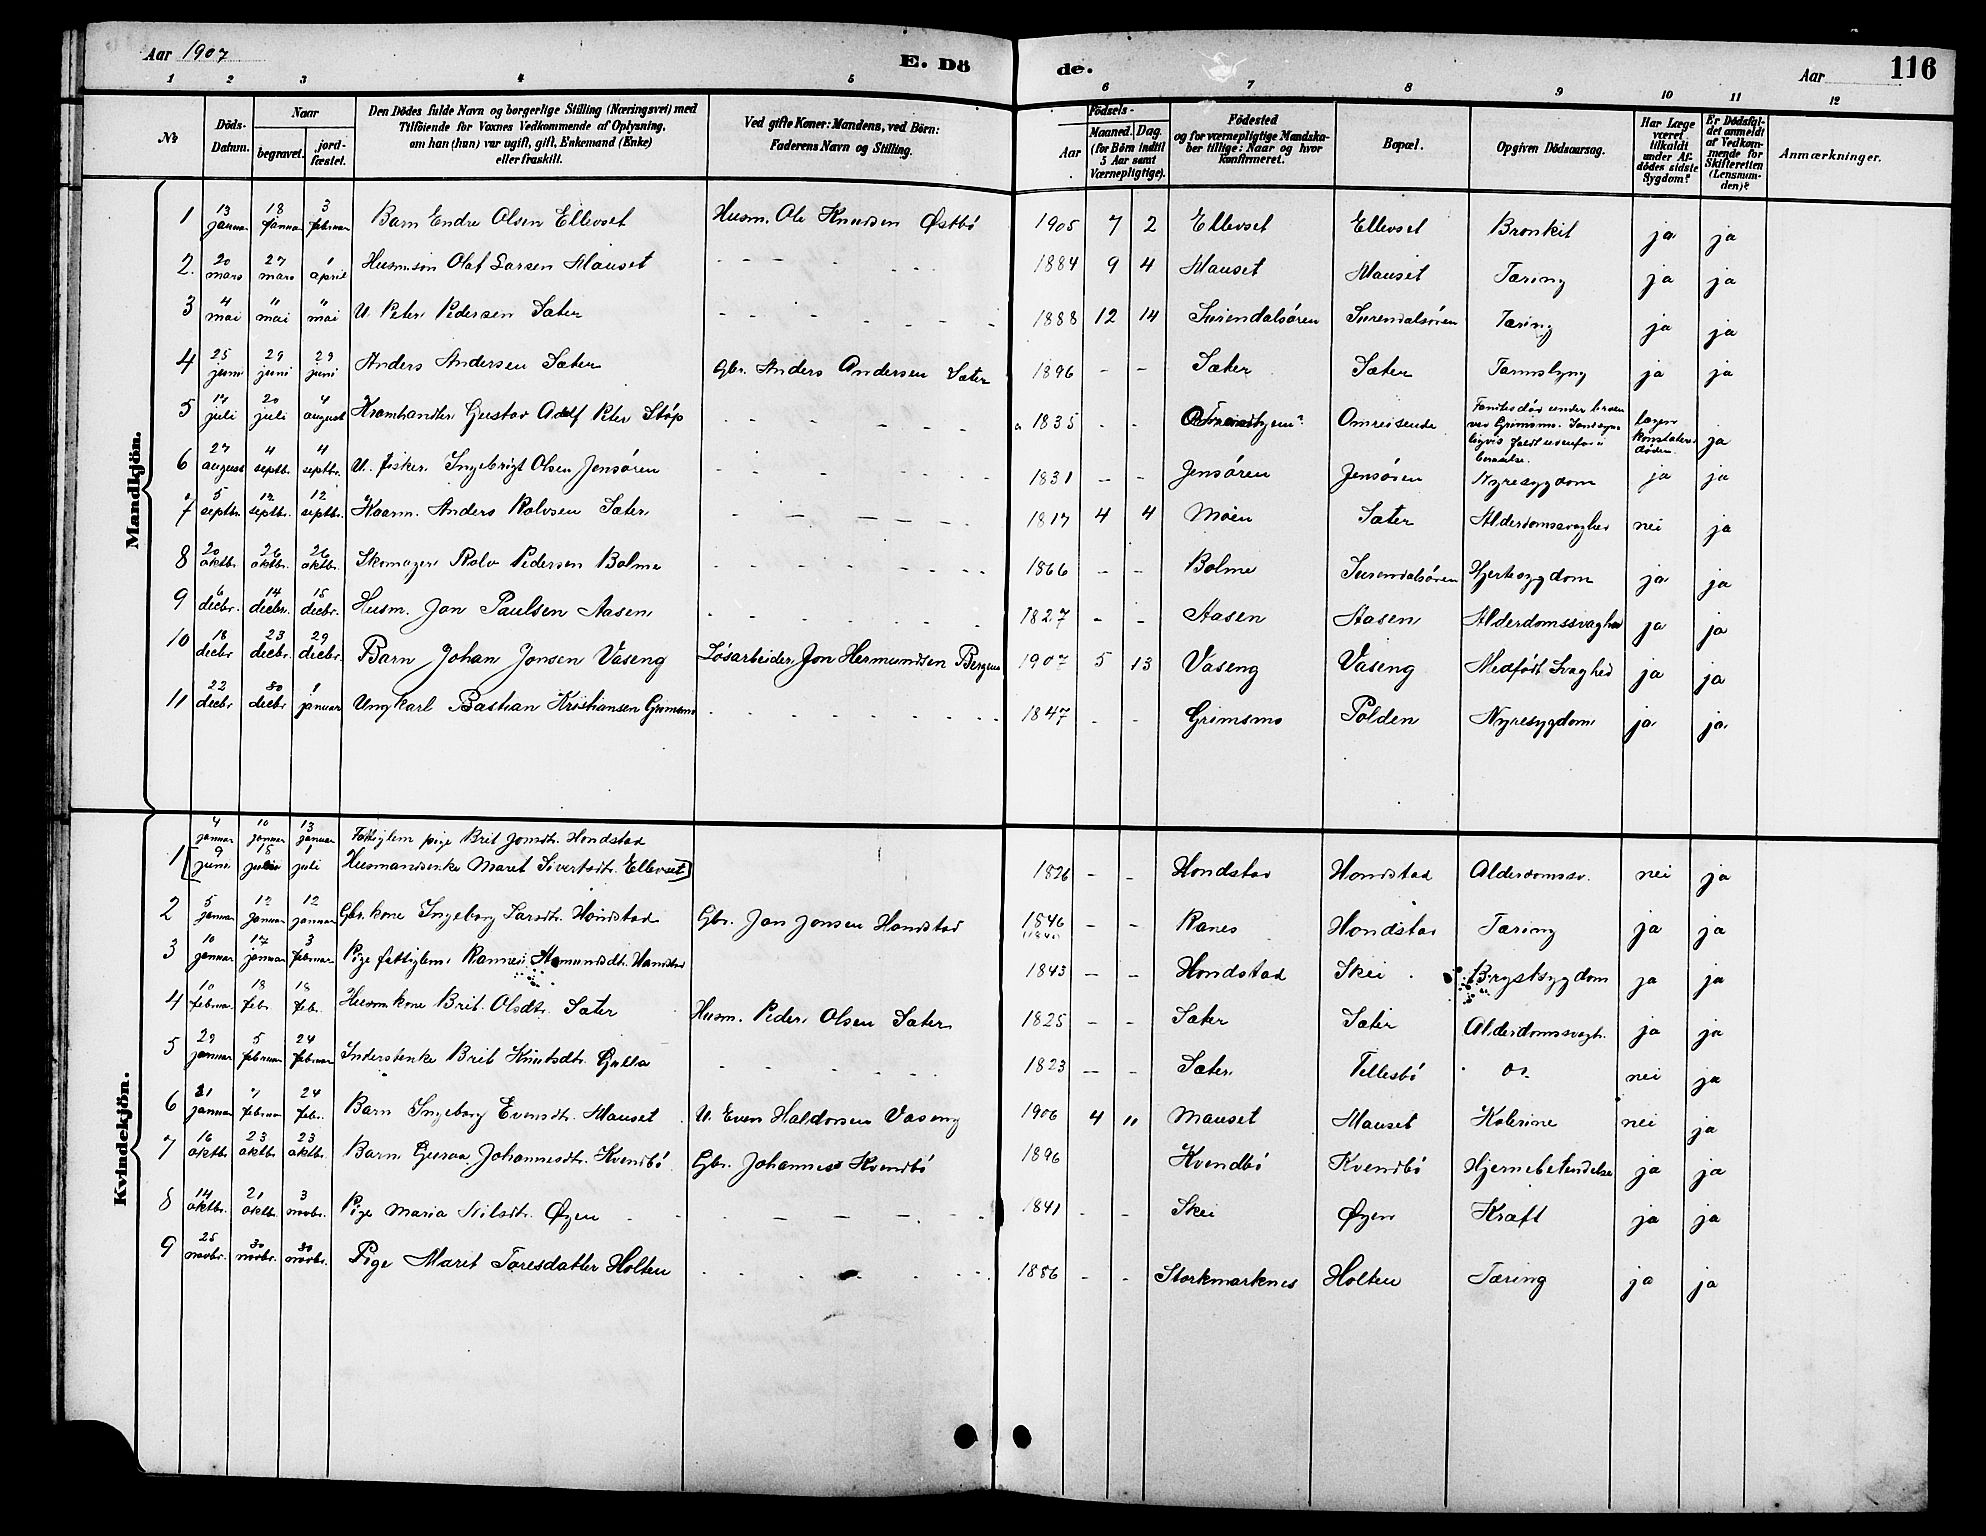 Aar 1907 E. Dö de. Aar 116
1 2 3 4 5 6 7 8 9 10 11 12
No
Döds-Datum.
Naar begravet. jordfæstet.
Den Dödes fulde Navn og borgerlige Stilling (Næringsvei) med
Tilföiende for Voxnes Vedkommende af Oplysning,
om han (hun) var ugift, gift, Enkemand (Enke)
eller fraskilt.
Ved gifte Koner: Mandens, ved Börn:
Faderens Navn og Stilling.
Födsels-
Aar Maaned. Dag.
(for Börn indtil
5 Aar samt
Værnepligtige).
Födested
og for værnepligtige Mandska-
ber tillige: Naar og hvor
konfirmeret.
Bopæl.
Opgiven Dödsaarsag.
Har Læge
været
tilkaldt
under Af-
dödes sidste
Sygdom?
Er Dödsfal-
det anmeldt
af Vedkom-
mende for
Skifteretten
(Lensman-
den)?
Anmærkninger.
Mandkjön.
1 13 januar 18 januar 3 februar Barn Endre Olsen Ellevset Husm. Ole Knudsen Østbö 1905 7 2 Ellevset Ellevset Bronkit ja ja
2. 20 mars 27 mars 1 april Husm.søn Olaf Larsen Mauset - - - - - - 1884 9 4 Mauset Mauset Tæring ja ja
3 4 mai " mai " mai U. Peter Pedersen Sæter - - - - - - - 1888 12 14 Surendalsören Surendalsören Tæring ja ja
4 25 juni 29 juni 29 juni Anders Andersen Sæter Gbr. Anders Andersen Sæter 1896 - - Sæter Sæter Tarmslyng ja ja
5 17 juli 20 juli 4 august Kramhandler Gustav Adolf Peter Stöp - - - - - - 1835 - - Omreisende under ved Grimsmo. ja
6 27 august 4 septbr. 4 septbr. U. fisker Ingebrigt Olsen Jensøren - - - - - - - 1831 - - Jensøren Jensøren Nyresygdom ja ja
7 5 septbr. 12 septbr. 12 septbr. Kaarm. Anders Rolvsen Sæter - - - - - - 1817 4 4 Moen Sæter Alderdomssvaghed nei ja
8 20 oktbr. 26 oktbr. 26 oktbr. Skomager Rolv Pedersen Bolme - - - - - - - - 1866 - - Bolme Surendalsören Hjertesygdom ja ja
9 6 decbr. 14 decbr. 15 decbr. Husm. Jon Paulsen Aasen - - - - - - - 1827 - - Aasen Aasen Alderdomssvaghed ja ja
10 18 decbr 23 decbr. 29 decbr. Barn Johan Jonsen Vaseng Løsarbeider Jon Hermundsen Bergem 1907 5 13 Vaseng Vaseng Medfødt Svaghed ja ja
11 22 decbr 30 decbr 1 januar Ungkarl Bastian Kristiansen Grimsmo - - - - - - - - 1847 - - Grimsmo Polden Nyresygdom ja ja
Kvindekjön.
4 januar 10 januar 13 januar Fattiglem pige Brit Jonsdtr. Hondstad
1 [9 juni 15 1 juli Husmandsenke Marit Sivertsdtr. Ellevset] 1826 - - Hondstad Hondstad Alderdomssv. nei ja
2 5 januar 12 januar 12 januar Gbr. kone Ingeborg Larsdtr. Hondstad Gbr. Jon Jonsen Hondstad 1846 - - Ranes Hondstad Tæring ja ja
3 10 januar 17 januar 3 februar Pige fattiglem Hondstad 1843 - - Hondstad Skei Brystsygdom ja ja
4 10 februar 18 febr. 18 febr. Husm. kone Brit Olsdtr. Sæter Husm. Peder Olsen Sæter 1825 - - Sæter Sæter Alderdomssvagh. ja ja
5 29 januar 5 februar 24 februar Inderstenke Brit Knutsdtr. Gulla - - - - - - 1823 - - Sæter Tellesbö Do. nei ja
6 31 januar " februar 24 febr. Barn Ingeborg Evensdtr. Mauset U. Even Haldorsen Vaseng 1906 4 11 Mauset Mauset Kolerine nei ja
7 16 oktbr. 23 oktbr. 23 oktbr. Barn Guroa Johannesdtr. Kvendbö Gbr. Johannes Kvendbö 1896 Kvendbö Kvendbö Hjernebetændelse ja ja
8 14 oktbr. 21 oktbr. 3 novbr. Pige Maria Nilsdtr. Øyen - - - - - - - 1841 - - Skei Øyen Kræft ja ja
9 25 novbr. 30 novbr. 30 novbr. Pige Marit Toresdatter Holten - - - - - - - 1886 - - Storkmarknes Holten Tæring ja ja